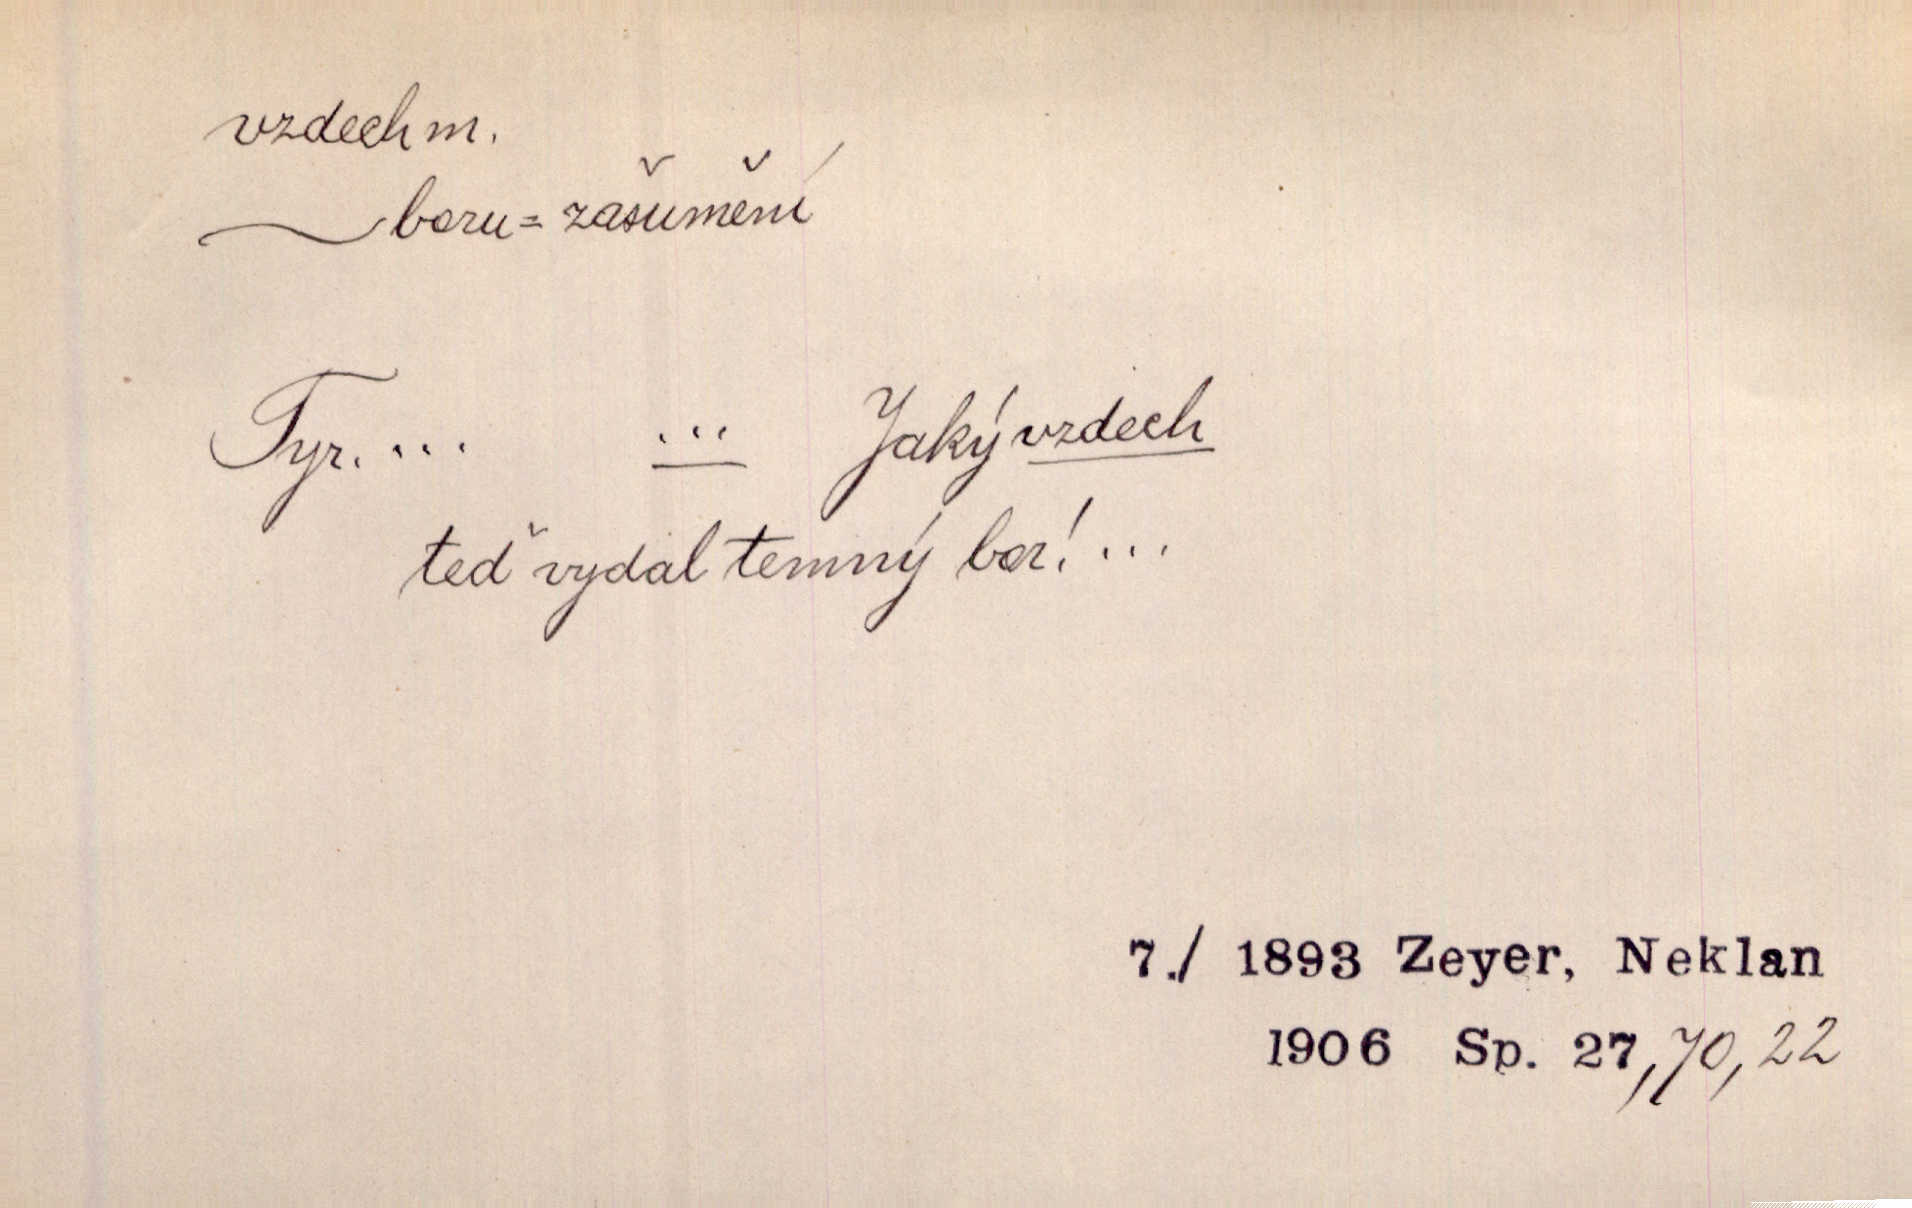 vzdech m.
~ boru = zašumění
Tyr. ... ... Jaký vzdech
teď vydal temný bor! ...
7./ 1893 Zeyer, Neklan
1906 Sp. 27, 70, 22